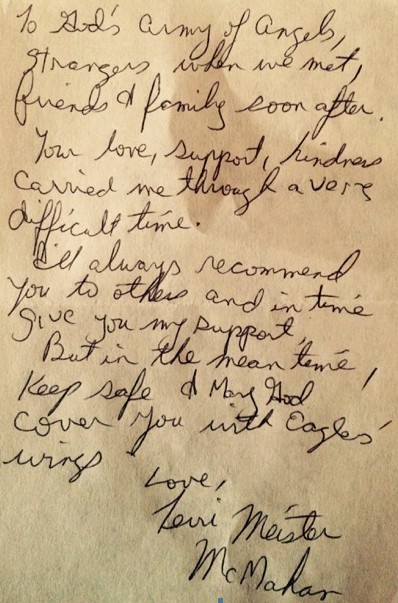 To God's Army of Angels,
Strangers when we met,
friends & family soon after.
Your love, support, kindness
carried me through a very
difficult time.
I'll always recommend
you to others and in time
give you my support.
But in the mean time,
Keep safe & May God
cover you with Eagles'
wings
Love,
Terri Meister
McMahan